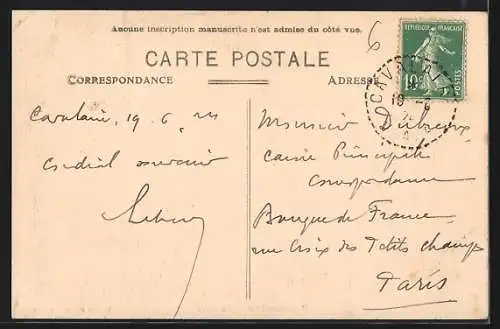 Aucune inscription manuscrite n'est admise du côté vue.
6
CARTE POSTALE
CORRESPONDANCE
ADRESSE
RÉPUBLIQUE FRANÇAISE
POSTES
10c
19 6
Cavalaire, 19 6
Monsieur
Cordial souvenir
Caisse Principale
Correspondance
Banque de France
rue Croix des Petits champs
Paris